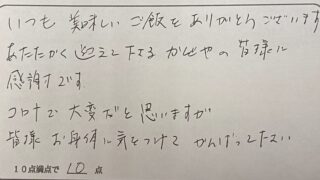 いつも美味しいご飯をありがとうございます
あたたかく迎えて下さる かせやの皆様に
感謝です
コロナで大変だと思いますが
皆様お身体に気をつけて がんばって下さい
10点満点で 10 点